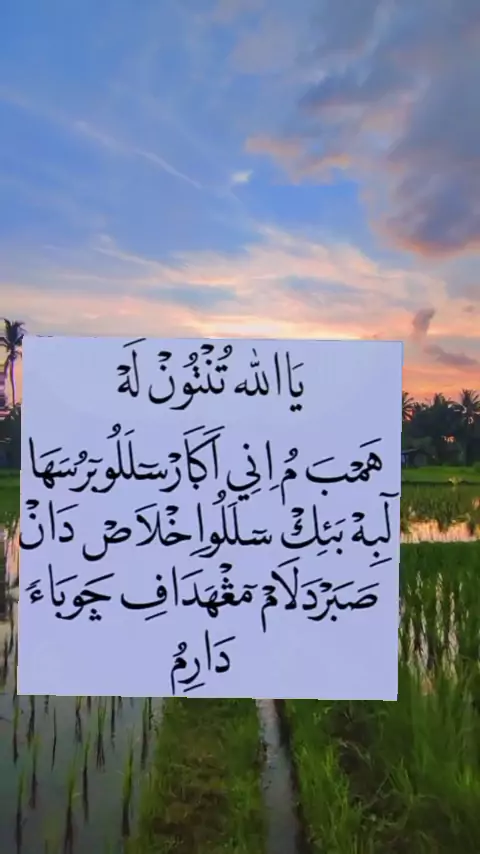 يَا الله تُنْتُوْنْ لَهْ
هَمْبَ مُ اِنِي اَكَارْ سٓلَلُو بٓرُسَهَا
لٓبِهْ بَئِكْ سٓلَلُو اِخْلَاصْ دَانْ
صَبَرْ دَلَامْ مٓڠْهَدَافِ چٓوبَاءَ
دَارِمُ